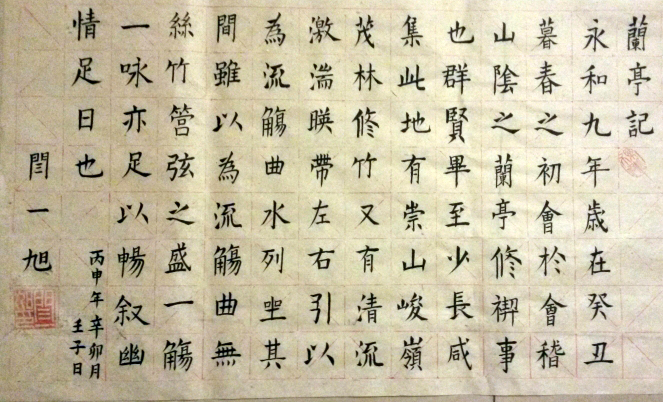 蘭亭記
永和九年歲在癸丑
暮春之初會於會稽
山陰之蘭亭修禊事
也群賢畢至少長咸
集此地有崇山峻嶺
茂林修竹又有清流
激湍暎帶左右引以
為流觴曲水列坐其
間雖以為流觴曲無
絲竹管弦之盛一觴
一咏亦足以暢叙幽
情足日也
丙申年辛卯月
壬子日
閆一旭